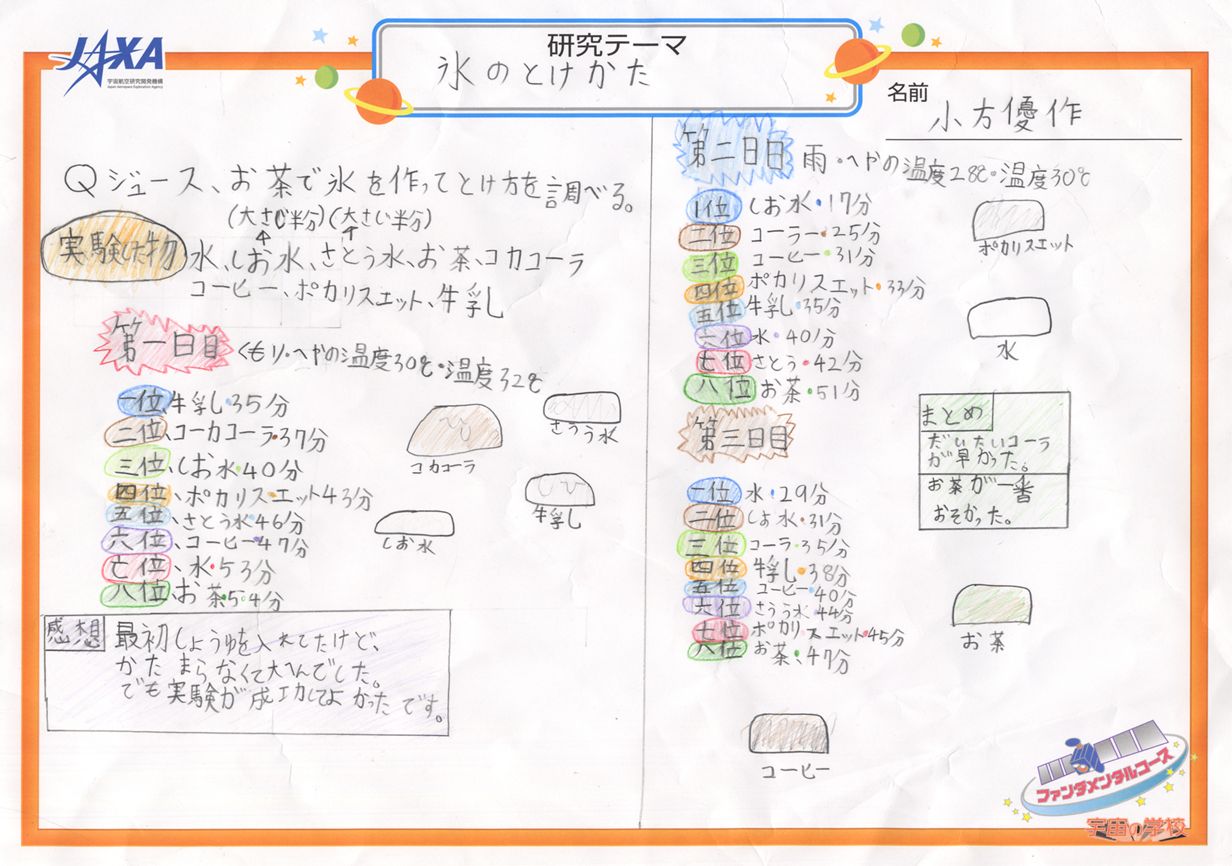 JAXA
宇宙航空研究開発機構
Japan Aerospace Exploration Agency
研究テーマ
氷のとけかた
名前
小方優作
Qジュース、お茶で氷を作ってとけ方を調べる。
(大さじ半分)(大さじ半分)
実験した物
水、しお水、さとう水、お茶、コカコーラ
コーヒー、ポカリスエット、牛乳
第一日目
くもり・へやの温度30℃・温度32℃
一位、牛乳・35分
二位、コーカコーラ・37分
三位、しお水・40分
四位、ポカリスエット43分
五位、さとう水・46分
六位、コーヒー・47分
七位、水・53分
八位、お茶・54分
コカコーラ
さとう水
牛乳
しお水
感想
最初しょうゆを入れてたけど、
かたまらなくて大へんでした。
でも実験が成功してよかったです。
第二日目
雨・へやの温度28℃・温度30℃
1位 しお水・17分
二位 コーラー・25分
三位 コーヒー・31分
四位 ポカリスエット・33分
五位 牛乳・35分
六位 水・40分
七位 さとう・42分
八位 お茶・51分
第三日目
一位 水・29分
二位 しお水・31分
三位 コーラ・35分
四位 牛乳・38分
五位 コーヒー・40分
六位 さとう水・44分
七位 ポカリスエット・45分
八位 お茶・47分
ポカリスエット
水
まとめ
だいたいコーラ
が早かった。
お茶が一番
おそかった。
お茶
コーヒー
ファンダメンタルコース
宇宙の学校